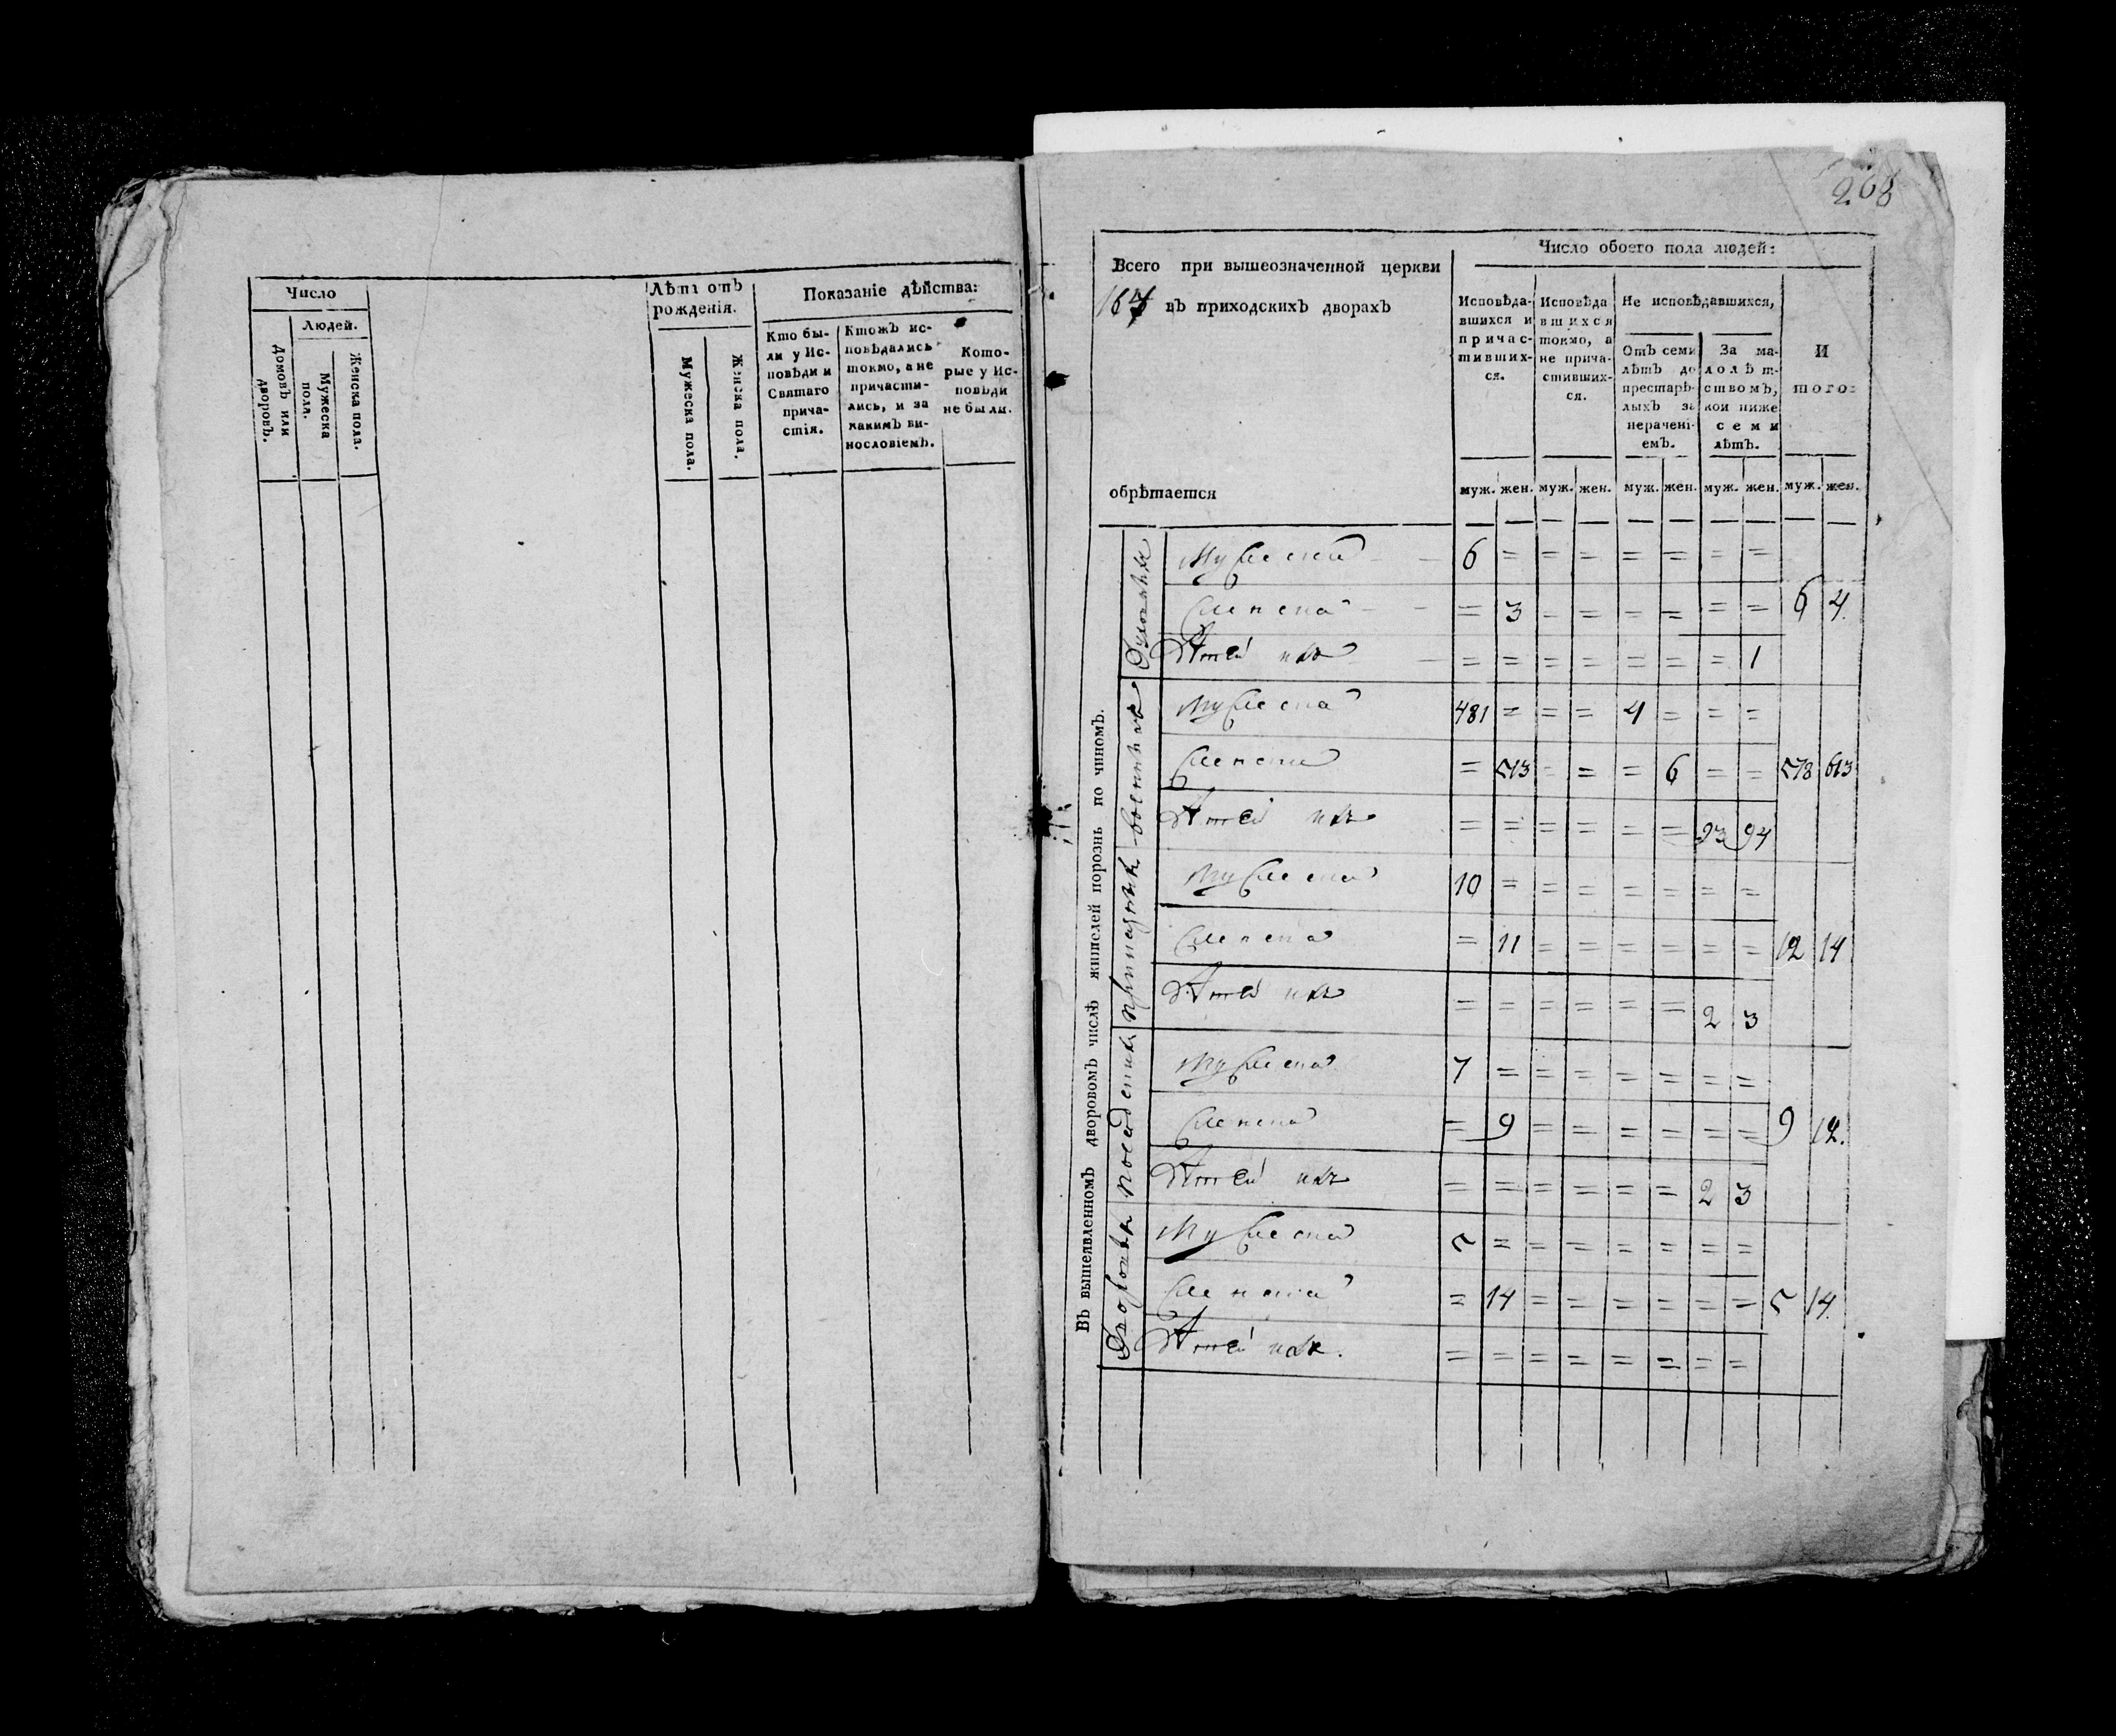 Число
Людей.
Домовъ или дворовъ.
Мужеска пола.
Женска пола.
Лѣта отъ рожденія.
Мужеска пола.
Женска пола.
Показаніе дѣйства:
Кто бы-
ли у Ис-
повѣди и
Святаго
прича-
стія.
Ктожъ ис-
повѣдались
токмо, а не
причасти-
лись, и за
какимъ ви-
нословіемъ.
Кото-
рые у Ис-
повѣди
не были.
268
Всего при вышеозначенной церкви
въ приходскихъ дворахъ
обрѣтается
Число обоего пола людей:
Исповѣда-
вшихся и
причас-
тивших-
ся.
Исповѣда
вшихся
токмо, а
не прича-
стивших-
ся.
Не исповѣдавшихся,
Отъ семи
лѣтъ до
престарѣ-
лыхъ за
нерачені-
емъ.
За ма-
лолѣт-
ствомъ,
кои ниже
семи
лѣтъ.
И
того:
муж. жен. муж. жен. муж. жен. муж. жен. муж. жен.
Въ вышеявленномъ дворовомъ числѣ жителей порознь по чиномъ.
Духовныхъ
Мужеска 6 = = = = = = =
Женска = 3 = = = = = = 6 4.
Дѣтей ихъ = = = = = = = 1
военныхъ
Мужеска 481 = = = 4 = = =
Женска = 513 = = = 6 = = 578 613
Дѣтей ихъ = = = = = = 93 94
приказныхъ
Мужеска 10 = = = = = = =
Женска = 11 = = = = = = 12 14
Дѣтей ихъ = = = = = = 2 3
посадскихъ
Мужеска 7 = = = = = = =
Женска = 9 = = = = = = 9 12.
Дѣтей ихъ = = = = = = 2 3
Дворовыхъ
Мужеска 5 = = = = = = =
Женска = 14 = = = = = = 5 14.
Дѣтей ихъ. = = = = = = = =